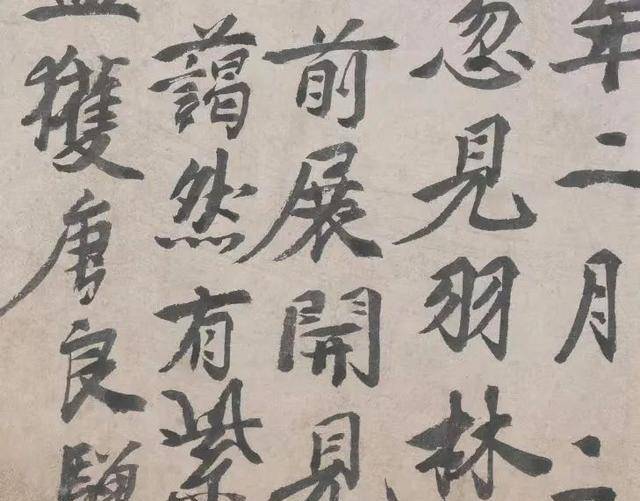 年二月
忽見羽林
前展開見
藹然有紫
獲唐良